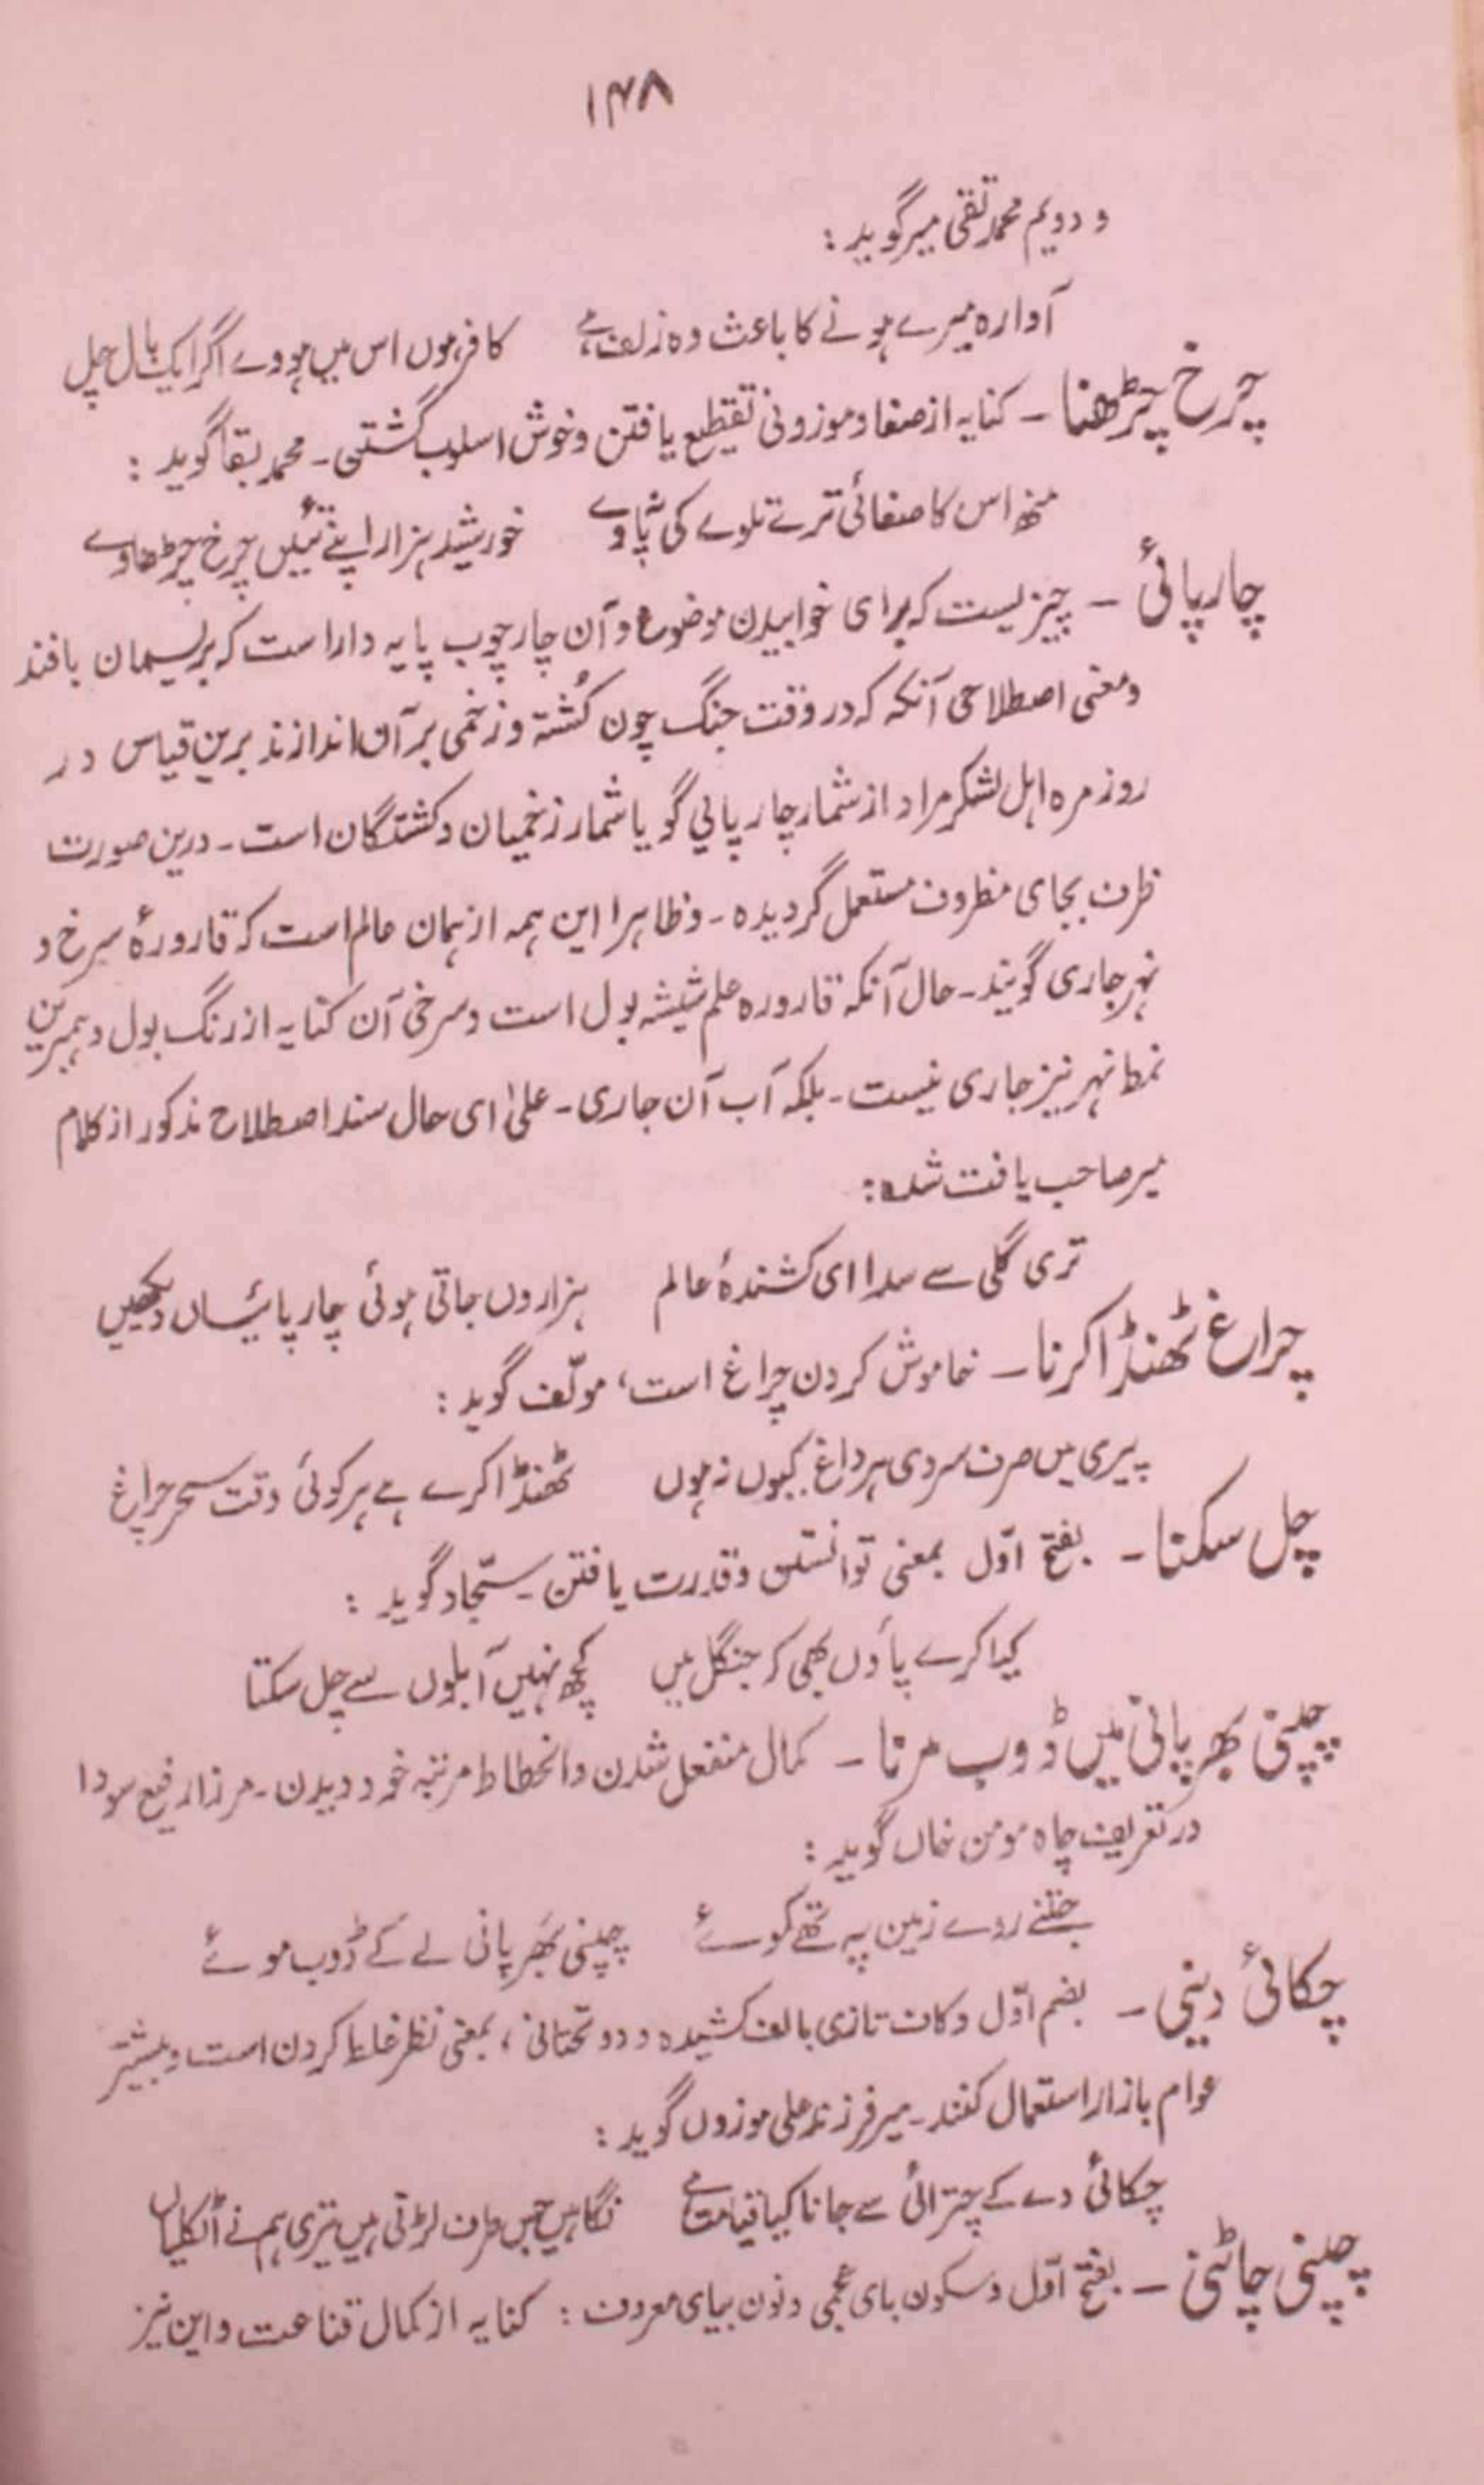 ۱۴۸
و دویم محمد تقی میر گوید :
آوارہ میرے ہونے کا باعث وہ زلف ہے کافر ہوں اس میں ہووے اگر ایک بال چل
چرخ چڑھنا - کنایہ از صفا و موزونی تقطیع یافتن و خوش اسلوب گشتن - محمد بقا گوید :
منھ اس کا صفائی ترے تلوے کی نپاوے خورشید ہزار اپنے تئیں چرخ چڑھاوے
چارپائی - چیزیست کہ برای خوابیدن موضوع و آن چار چوب پایہ دار است کہ بریسمان بافند
و معنی اصطلاحی آنکہ کہ در وقت جنگ چون کُشتہ و زخمی بر آن اندازند برین قیاس در
روزمرہ اہل لشکر مراد از شمار چارپائي گویا شمار زخمیان و کشتگان است - درین صورت
ظرف بجای مظروف مستعمل گردیدہ - و ظاہرا این ہمہ از ہمان عالم است کہ قارورۂ سرخ و
نہر جاری گویند - حال آنکہ قارورہ علم شیشہ بول است و سرخی آن کنایہ از رنگ بول و ہمبرین
نمط نہر نیز جاری نیست - بلکہ آب آن جاری - علیٰ ای حال سند اصطلاح مذکور از کلام
میر صاحب یافت شدہ :
تری گلی سے سدا ای کشندۂ عالم ہزاروں جاتی ہوئی چارپائیاں دیکھیں
چراغ ٹھنڈا کرنا - خاموش کردن چراغ است، مولّف گوید :
پیری میں صرف سردی ہر داغ کیوں نہ ہوں ٹھنڈا کرے ہے ہر کوئی وقت سحر چراغ
چل سکنا - بفتح اوّل بمعنی توانستن و قدرت یافتن - سجّاد گوید :
کیا کرے پاؤں بھی کر جنگل میں کچھ نہیں آبلوں سے چل سکتا
چپنی بھر پانی میں ڈوب مرنا - کمال منفعل شدن و انحطاط مرتبہ خود دیدن - مرزا رفیع سودا
در تعریف چاہ مومن خاں گوید :
جتنے روے زمین پہ تھے کوے چپنی بھر پانی لے کے ڈوب موے
چکائی دینی - بضم اوّل و کاف تازی بالف کشیدہ و دو تحتانی، بمعنی نظر غلط کردن است و بیشتر
عوام بازار استعمال کنند - میر فرزند علی موزوں گوید :
چکائی دے کے چترائی سے جانا کیا قیامت ہے نگاہیں جس طرف لڑتی ہیں تیری ہم نے اٹکلیاں
چپنی چاٹنی - بفتح اوّل و سکون بای عجمی و نون بیای معروف : کنایہ از کمال قناعت و این نیز